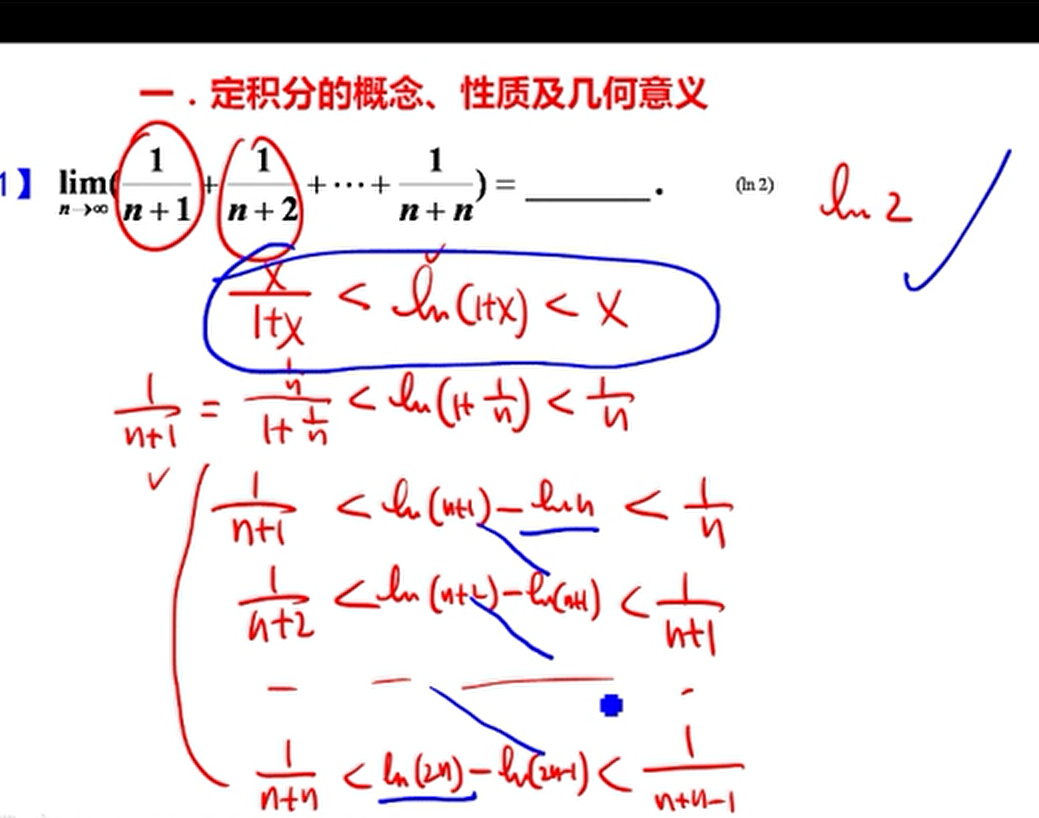 一．定积分的概念、性质及几何意义
1】 lim(n→∞) (1/(n+1) + 1/(n+2) + ⋯ + 1/(n+n)) = ________. (ln 2) ln 2
x/(1+x) < ln(1+x) < x
1/(n+1) = (1/n)/(1+1/n) < ln(1+1/n) < 1/n
1/(n+1) < ln(n+1) − ln n < 1/n
1/(n+2) < ln(n+2) − ln(n+1) < 1/(n+1)
1/(n+n) < ln(2n) − ln(2n−1) < 1/(n+n−1)